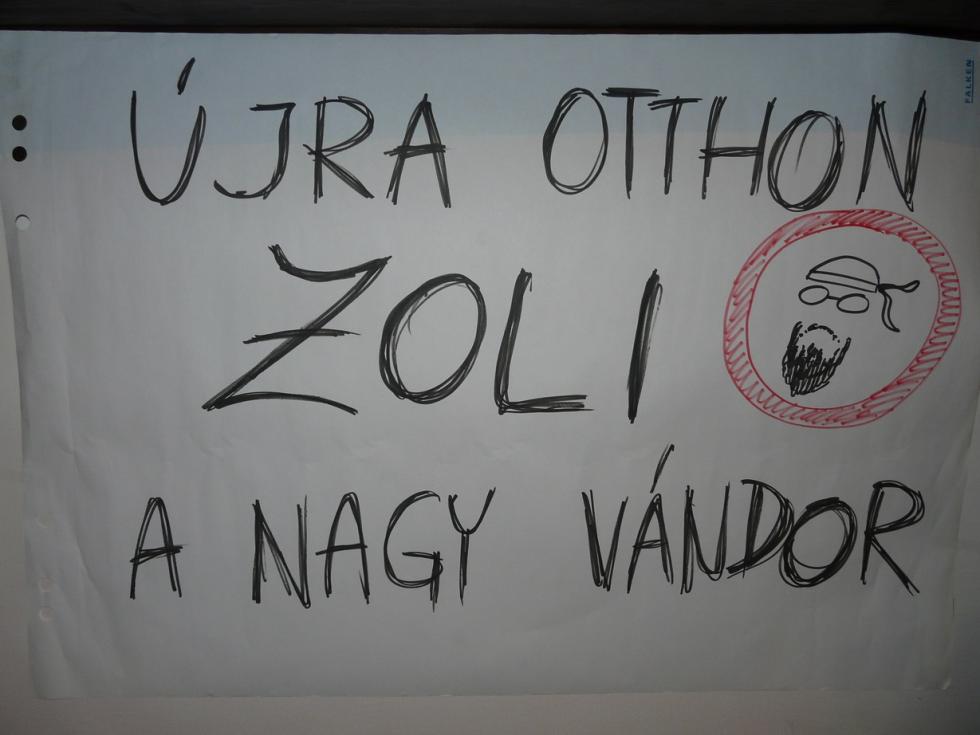 ÚJRA OTTHON
ZOLI
A NAGY VÁNDOR
FALKEN